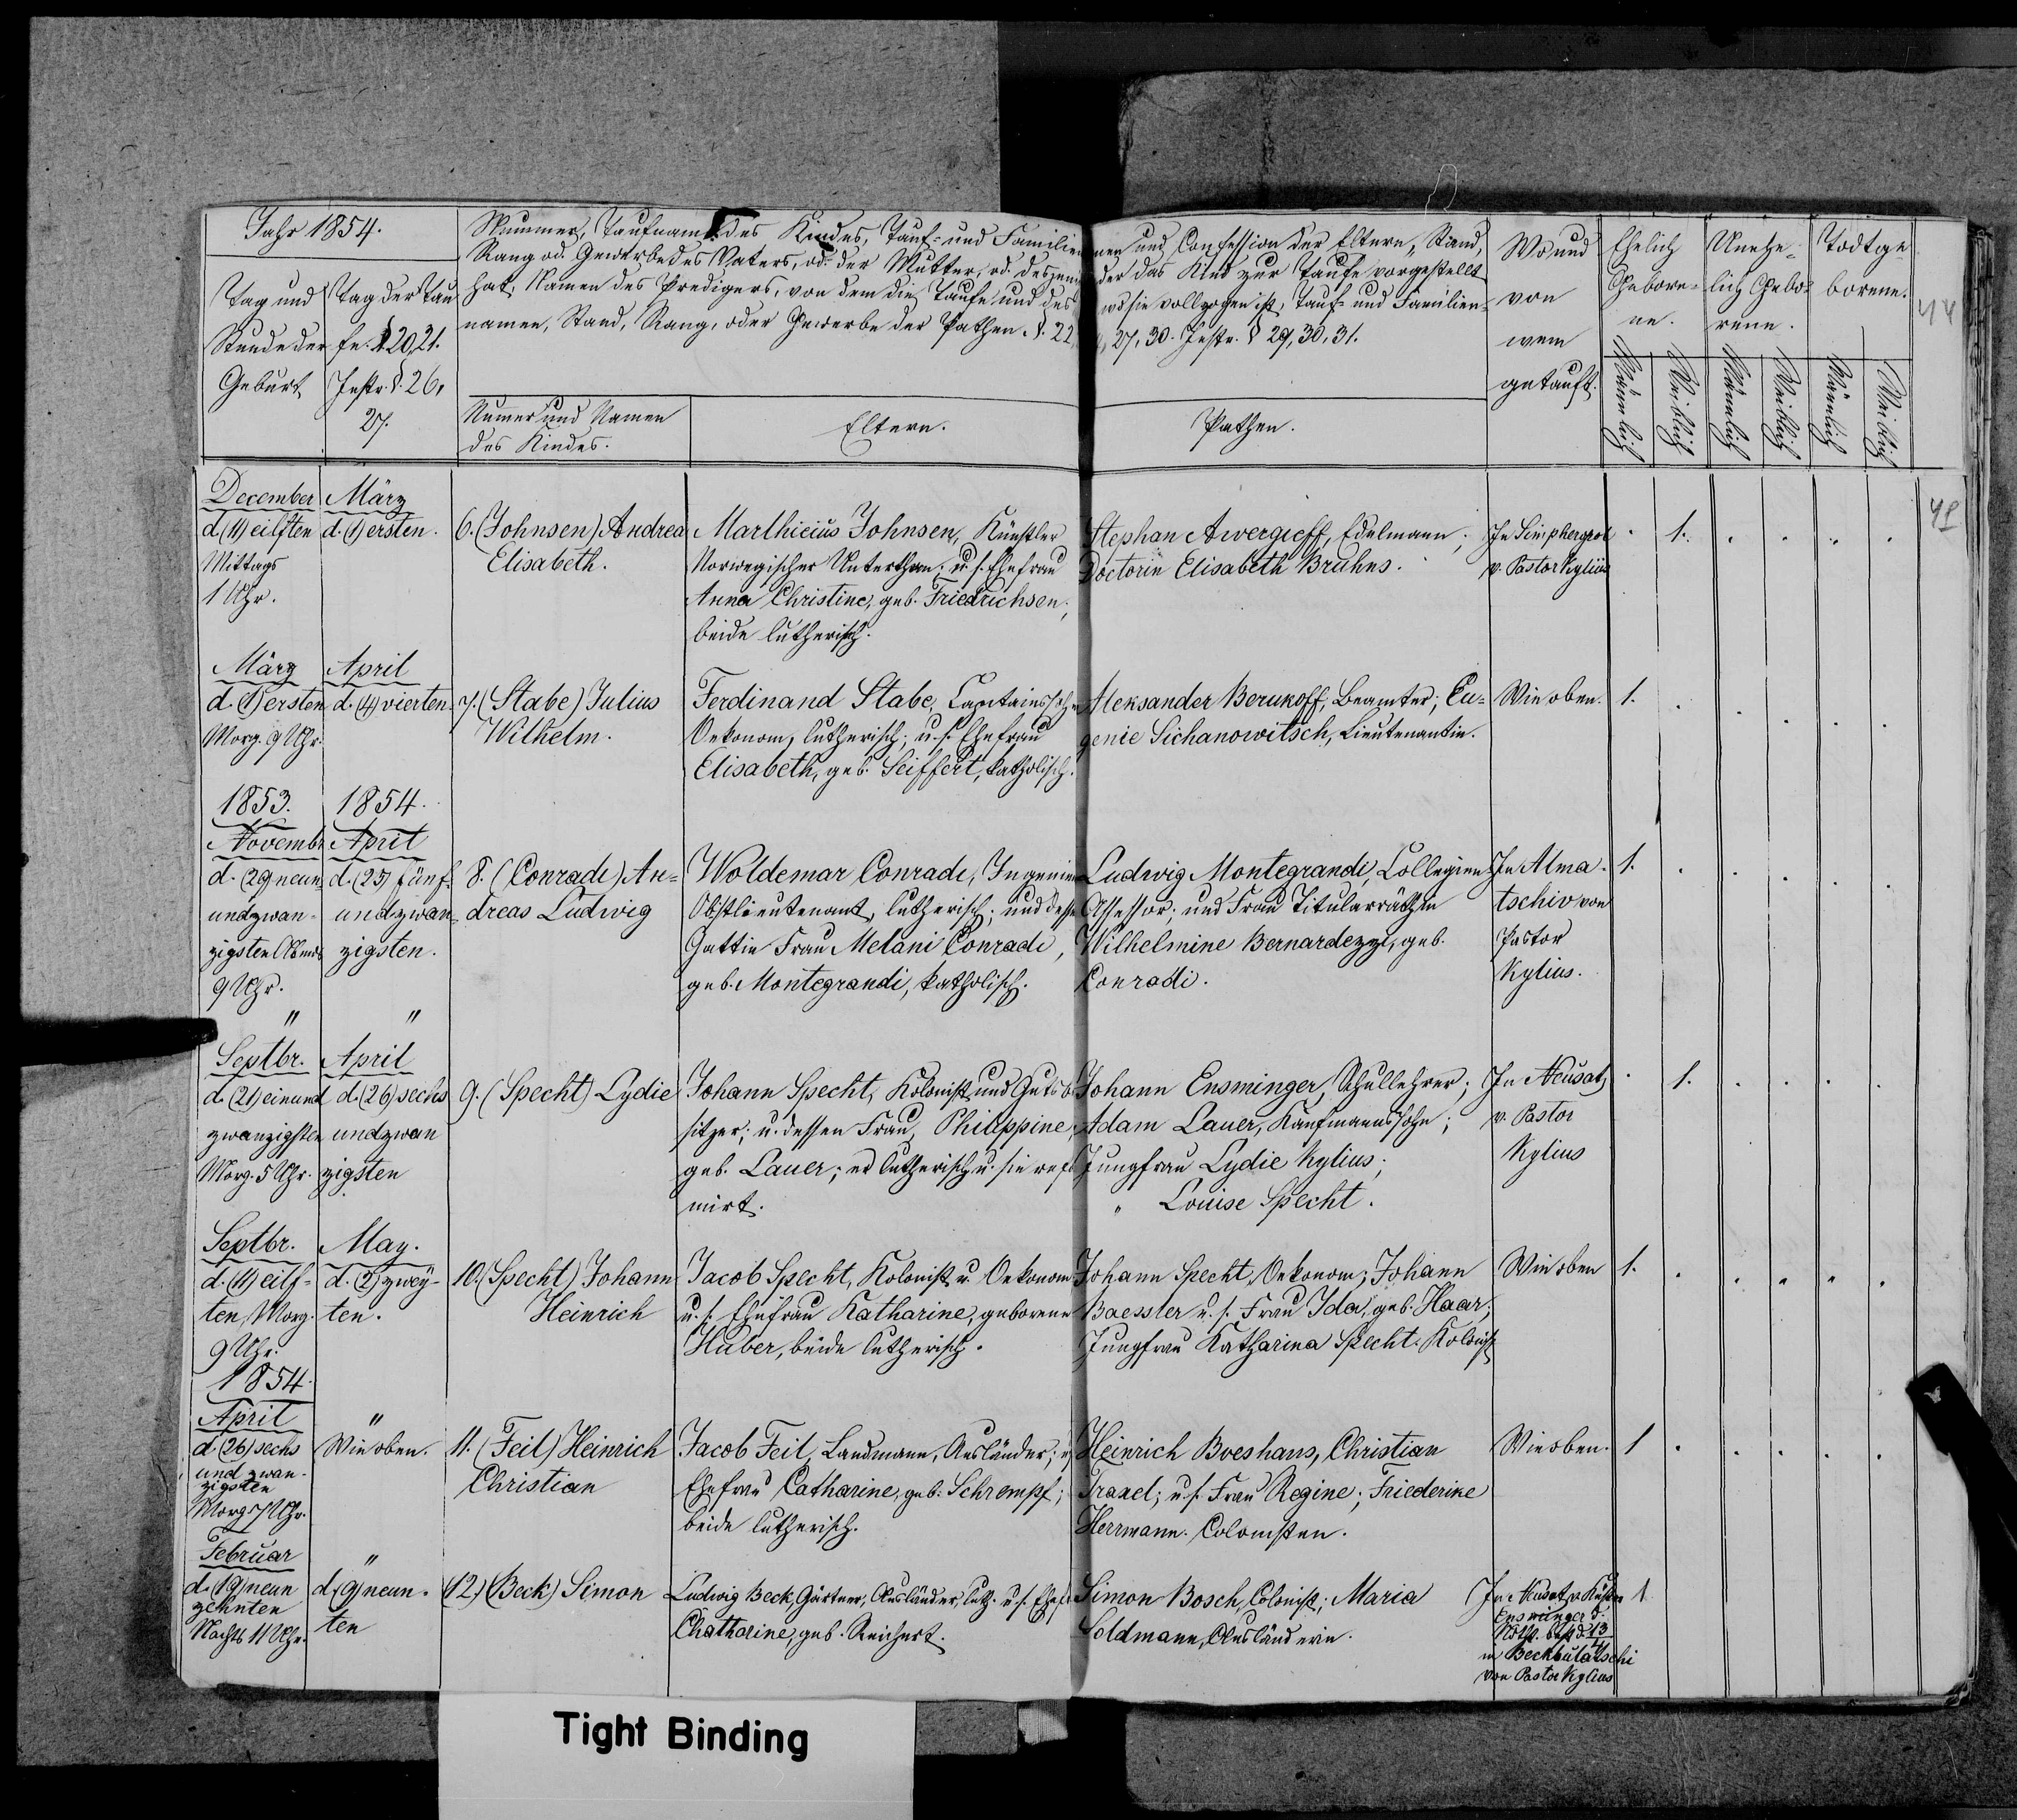 Jahr 1854.
Tag und
Stunde der
Geburt
Tag der Tau
fe. § 20, 21.
Instr. §. 26,
27.
Nummer, Taufname des Kindes, Tauf- und Familien
Rang od. Gewerbe des Vaters, od. der Mutter, od. desjeni
hat, Namen des Predigers, von dem die Taufe und des
namen, Stand, Rang, oder Gewerbe der Pathen. §. 22
Numer und Namen
des Kindes.
Eltern.
nen und Confession der Eltern, Stand,
der das Kind zur Taufe vorgestellt
wo sie vollzogen ist, Tauf- und Familien-
27, 30. Instr. § 29, 30, 31.
Pathen.
Wo und
von
wem
getauft.
Ehelich
Gebore-
ne.
Unehe-
lich Gebo-
rene.
Todtge-
borene.
Männlich
Weiblich
Männlich
Weiblich
Männlich
Weiblich
44
December
d. (11) eilften
Mittags
1 Uhr.
März
d. (1) ersten.
6. (Johnsen) Andrea
Elisabeth.
Marthicius Johnsen, Künstler
Norwegischer Unterthan; u. s. Ehefrau
Anna Christine, geb. Friedrichsen;
beide lutherisch.
Stephan Awergieff, Edelmann;
Doctorin Elisabeth Bruhns.
In Simpheropol
v. Pastor Kylius
1.
März
d. (1) ersten
Morg. 9 Uhr.
April
d. (4) vierten.
7. (Stabe) Julius
Wilhelm.
Ferdinand Stabe, Capitainssohn
Oekonom, lutherisch; u. s. Ehefrau
Elisabeth, geb. Seiffert, katholisch.
Aleksander Berukoff, Beamter; Eu-
genie Sichanowitsch, Lieutenantin.
Wie oben.
1.
1853.
Novembr
d. (29) neun
undzwan-
zigsten Abends
9 Uhr.
1854.
April
d. (25) fünf-
undzwan-
zigsten.
8. (Conradi) An-
dreas Ludwig
Woldemar Conradi, Ingenieur
Obstlieutenant, lutherisch; und dessen
Gattin Frau Melani Conradi,
geb. Montegrandi, katholisch.
Ludwig Montegrandi, Collegien
Assessor; und Frau Titularräthin
Wilhelmine Bernardezzi, geb.
Conradi.
In Alma
tschiv von
Pastor
Kylius.
1.
"
Septbr.
d. (21) einund
zwanzigsten
Morg. 5 Uhr.
"
April
d. (26) sechs
undzwan
zigsten
9. (Specht) Lydie
Johann Specht, Kolonist und Gutsbe
sitzer; u. dessen Frau, Philippine,
geb. Lauer; er lutherisch u. sie refor
mirt.
Johann Ensminger, Schullehrer;
Adam Lauer, Kaufmannssohn;
Jungfrau Lydie Kylius;
" Louise Specht.
In Neusatz
v. Pastor
Kylius
1.
Septbr.
d. (11) eilf-
ten, Morg.
9 Uhr.
May.
d. (2) zwey-
ten.
10. (Specht) Johann
Heinrich
Jacob Specht, Kolonist u. Oekonom
u. s. Ehefrau Katharine, geborene
Huber, beide lutherisch.
Johann Specht, Oekonom; Johann
Baessler u. s. Frau Ida, geb. Haar;
Jungfrau Katharina Specht. Kolonist
Wie oben
1.
1854.
April
d. (26) sechs
und zwan-
zigsten
Morg. 7 Uhr.
"
Wie oben.
11. (Feil) Heinrich
Christian
Jacob Feil, Landmann, Ausländer; u.
Ehefrau Catharine, geb. Schrempf;
beide lutherisch.
Heinrich Boeshans, Christian
Traxel; u. s. Frau Regine; Friederike
Herrmann. Colonisten.
Wie oben.
1
Februar
d. (19) neun
zehnten
Nachts 11 Uhr.
"
d. (9) neun-
ten
(12.) (Beck) Simon
Ludwig Beck, Gärtner, Ausländer, luth. u. s. Ehefr
Chatharine, geb. Reichert.
Simon Bosch, Colonist; Maria
Soldmann, Ausländerin.
In Neusatz v. Küster
Ensminger d.
in Beckbulatschi
von Pastor Kylius
1
Tight Binding